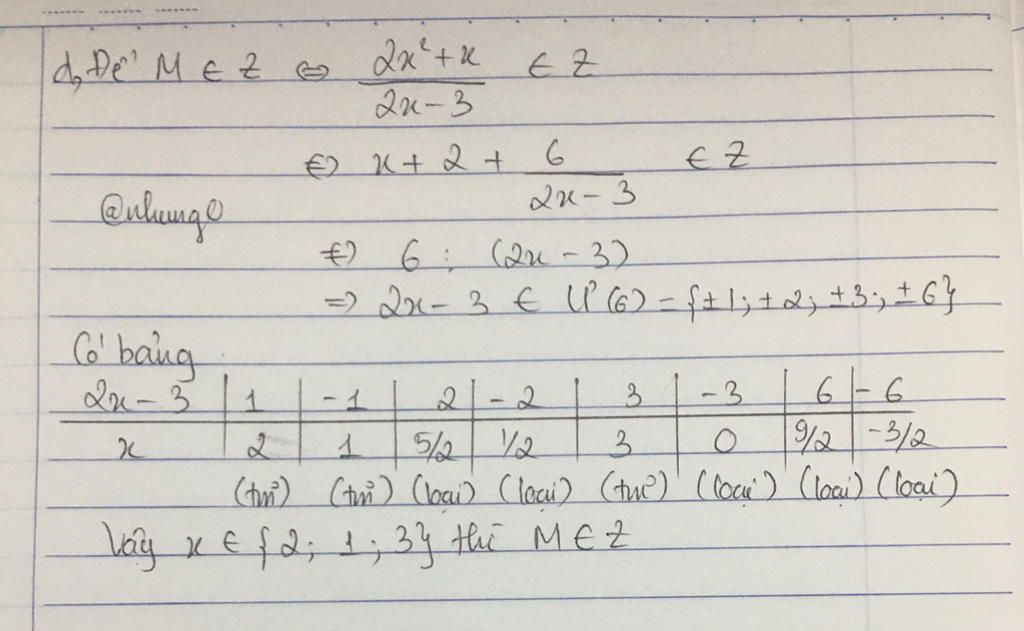 d, Để M ∈ Z ⇔ (2x²+x)/(2x-3) ∈ Z
⇔ x + 2 + 6/(2x-3) ∈ Z
@nhung0
⇔ 6 ⋮ (2x - 3)
=> 2x - 3 ∈ Ư(6) = {±1; ±2; ±3; ±6}
Có bảng
2x - 3 | 1 | -1 | 2 | -2 | 3 | -3 | 6 | -6
x | 2 | 1 | 5/2 | 1/2 | 3 | 0 | 9/2 | -3/2
(tm) (tm) (loại) (loại) (tm) (loại) (loại) (loại)
Vậy x ∈ {2; 1; 3} thì M ∈ Z